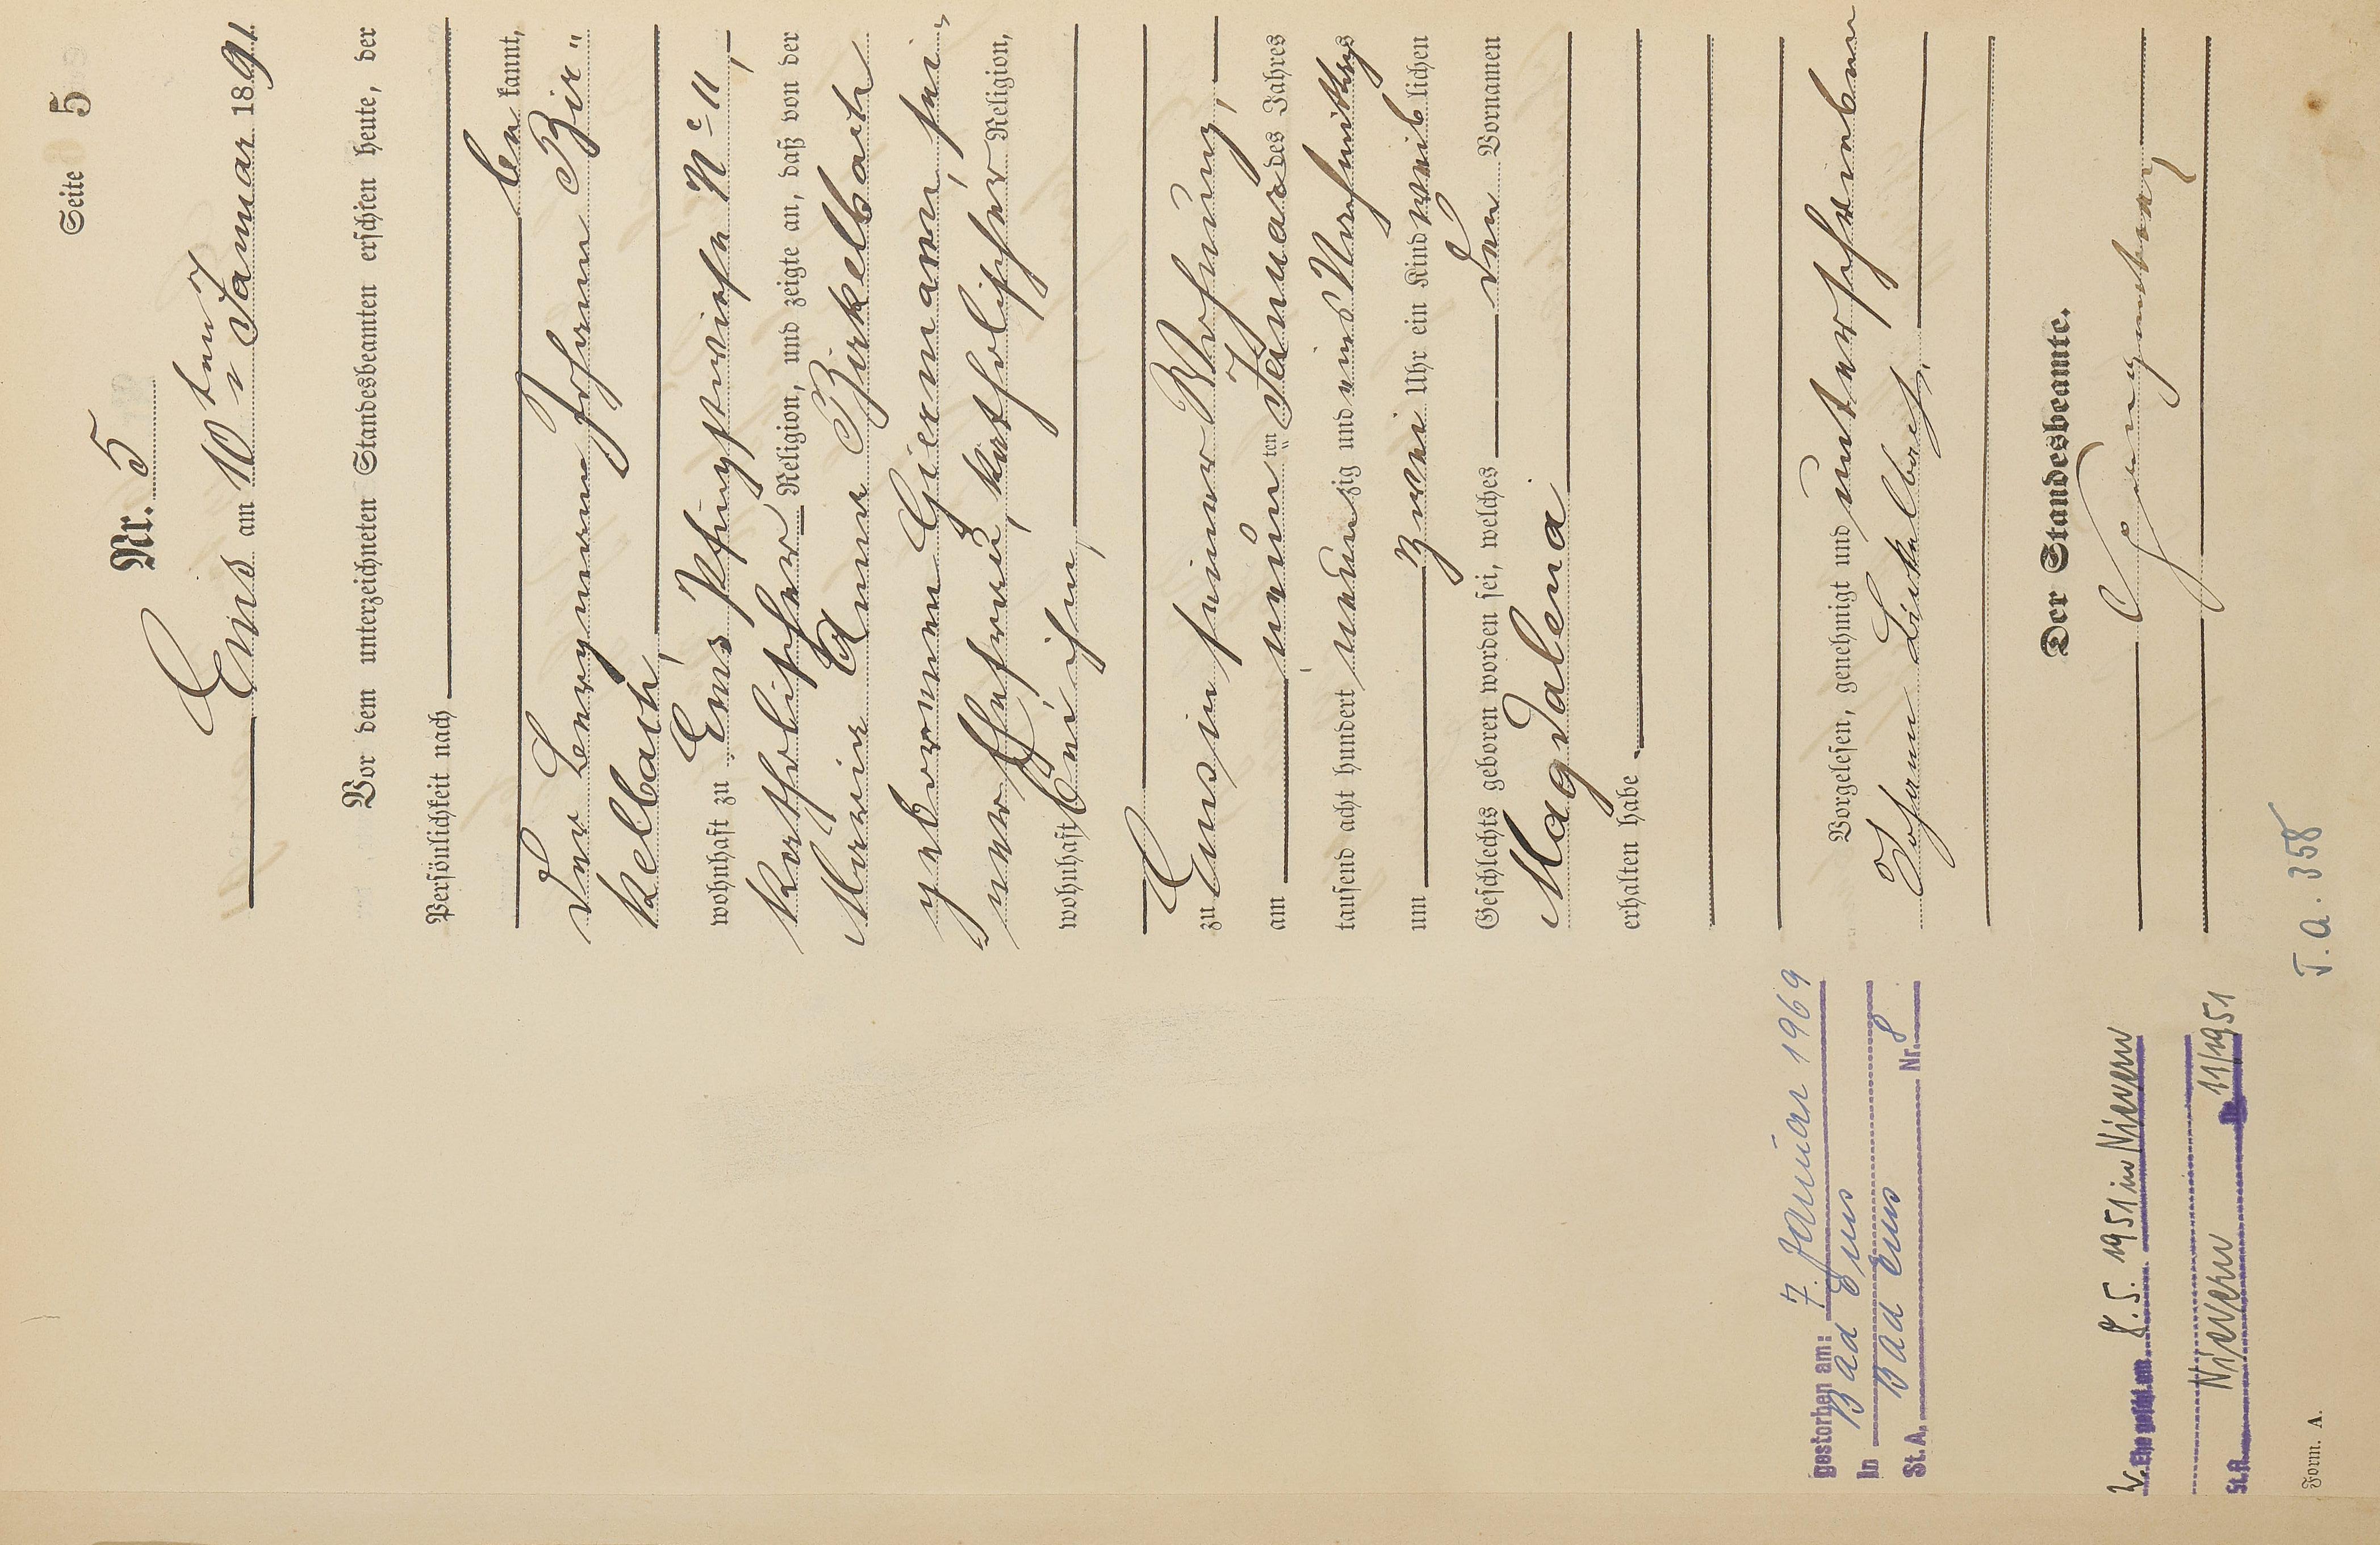 Seite 5
Nr. 5
Ems am 10ten Januar 1891.
Vor dem unterzeichneten Standesbeamten erschien heute, der
Persönlichkeit nach
bekannt,
der Bergmann Johann Bir-
kelbach,
wohnhaft zu Ems Pfingstwiese No 11,
katholischer Religion, und zeigte an, daß von der
Maria Anna Birkelbach
gebornen Giermann, sei-
ner Ehefrau, katholischer Religion,
wohnhaft bei ihm,
zu Ems in seiner Wohnung,
am neunten Januar des Jahres
tausend acht hundert neunzig und eins Nachmittags
um zwei Uhr ein Kind weiblichen
Geschlechts geboren worden sei, welches den Vornamen
Magdalena
erhalten habe
Vorgelesen, genehmigt und unterschrieben
Johann Birkelbach.
Der Standesbeamte.
gestorben am: 7. Januar 1969
in Bad Ems
St. A. Bad Ems Nr. 8
Ehe geschl. am 8.5.1951 in Nievern
St. A. Nievern Nr. 11/1951
T. A. 358
Form. A.